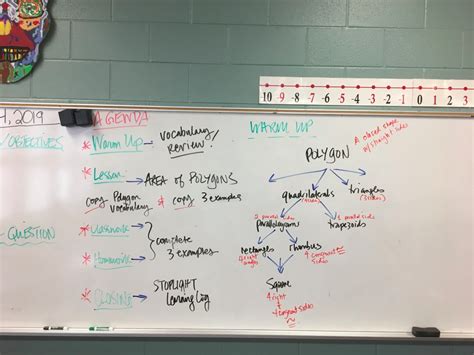 10 -9 -8 -7 -6 -5 -4 -3 -2 -1 0 1 2
4, 2019
AGENDA
OBJECTIVES
* Warm Up → vocabulary
review!
* Lesson → AREA OF POLYGONS
copy Polygon vocabulary & copy 3 examples
QUESTION
* Classwork
* Homework
complete
3 examples
* CLOSING
STOPLIGHT
Learning Log
WARM UP
POLYGON
A closed shape
w/straight sides
quadrilaterals
triangles
parallelogram
trapezoids
rectangles
rhombus
4 right
angles
4 congruent
sides
Square
4 right